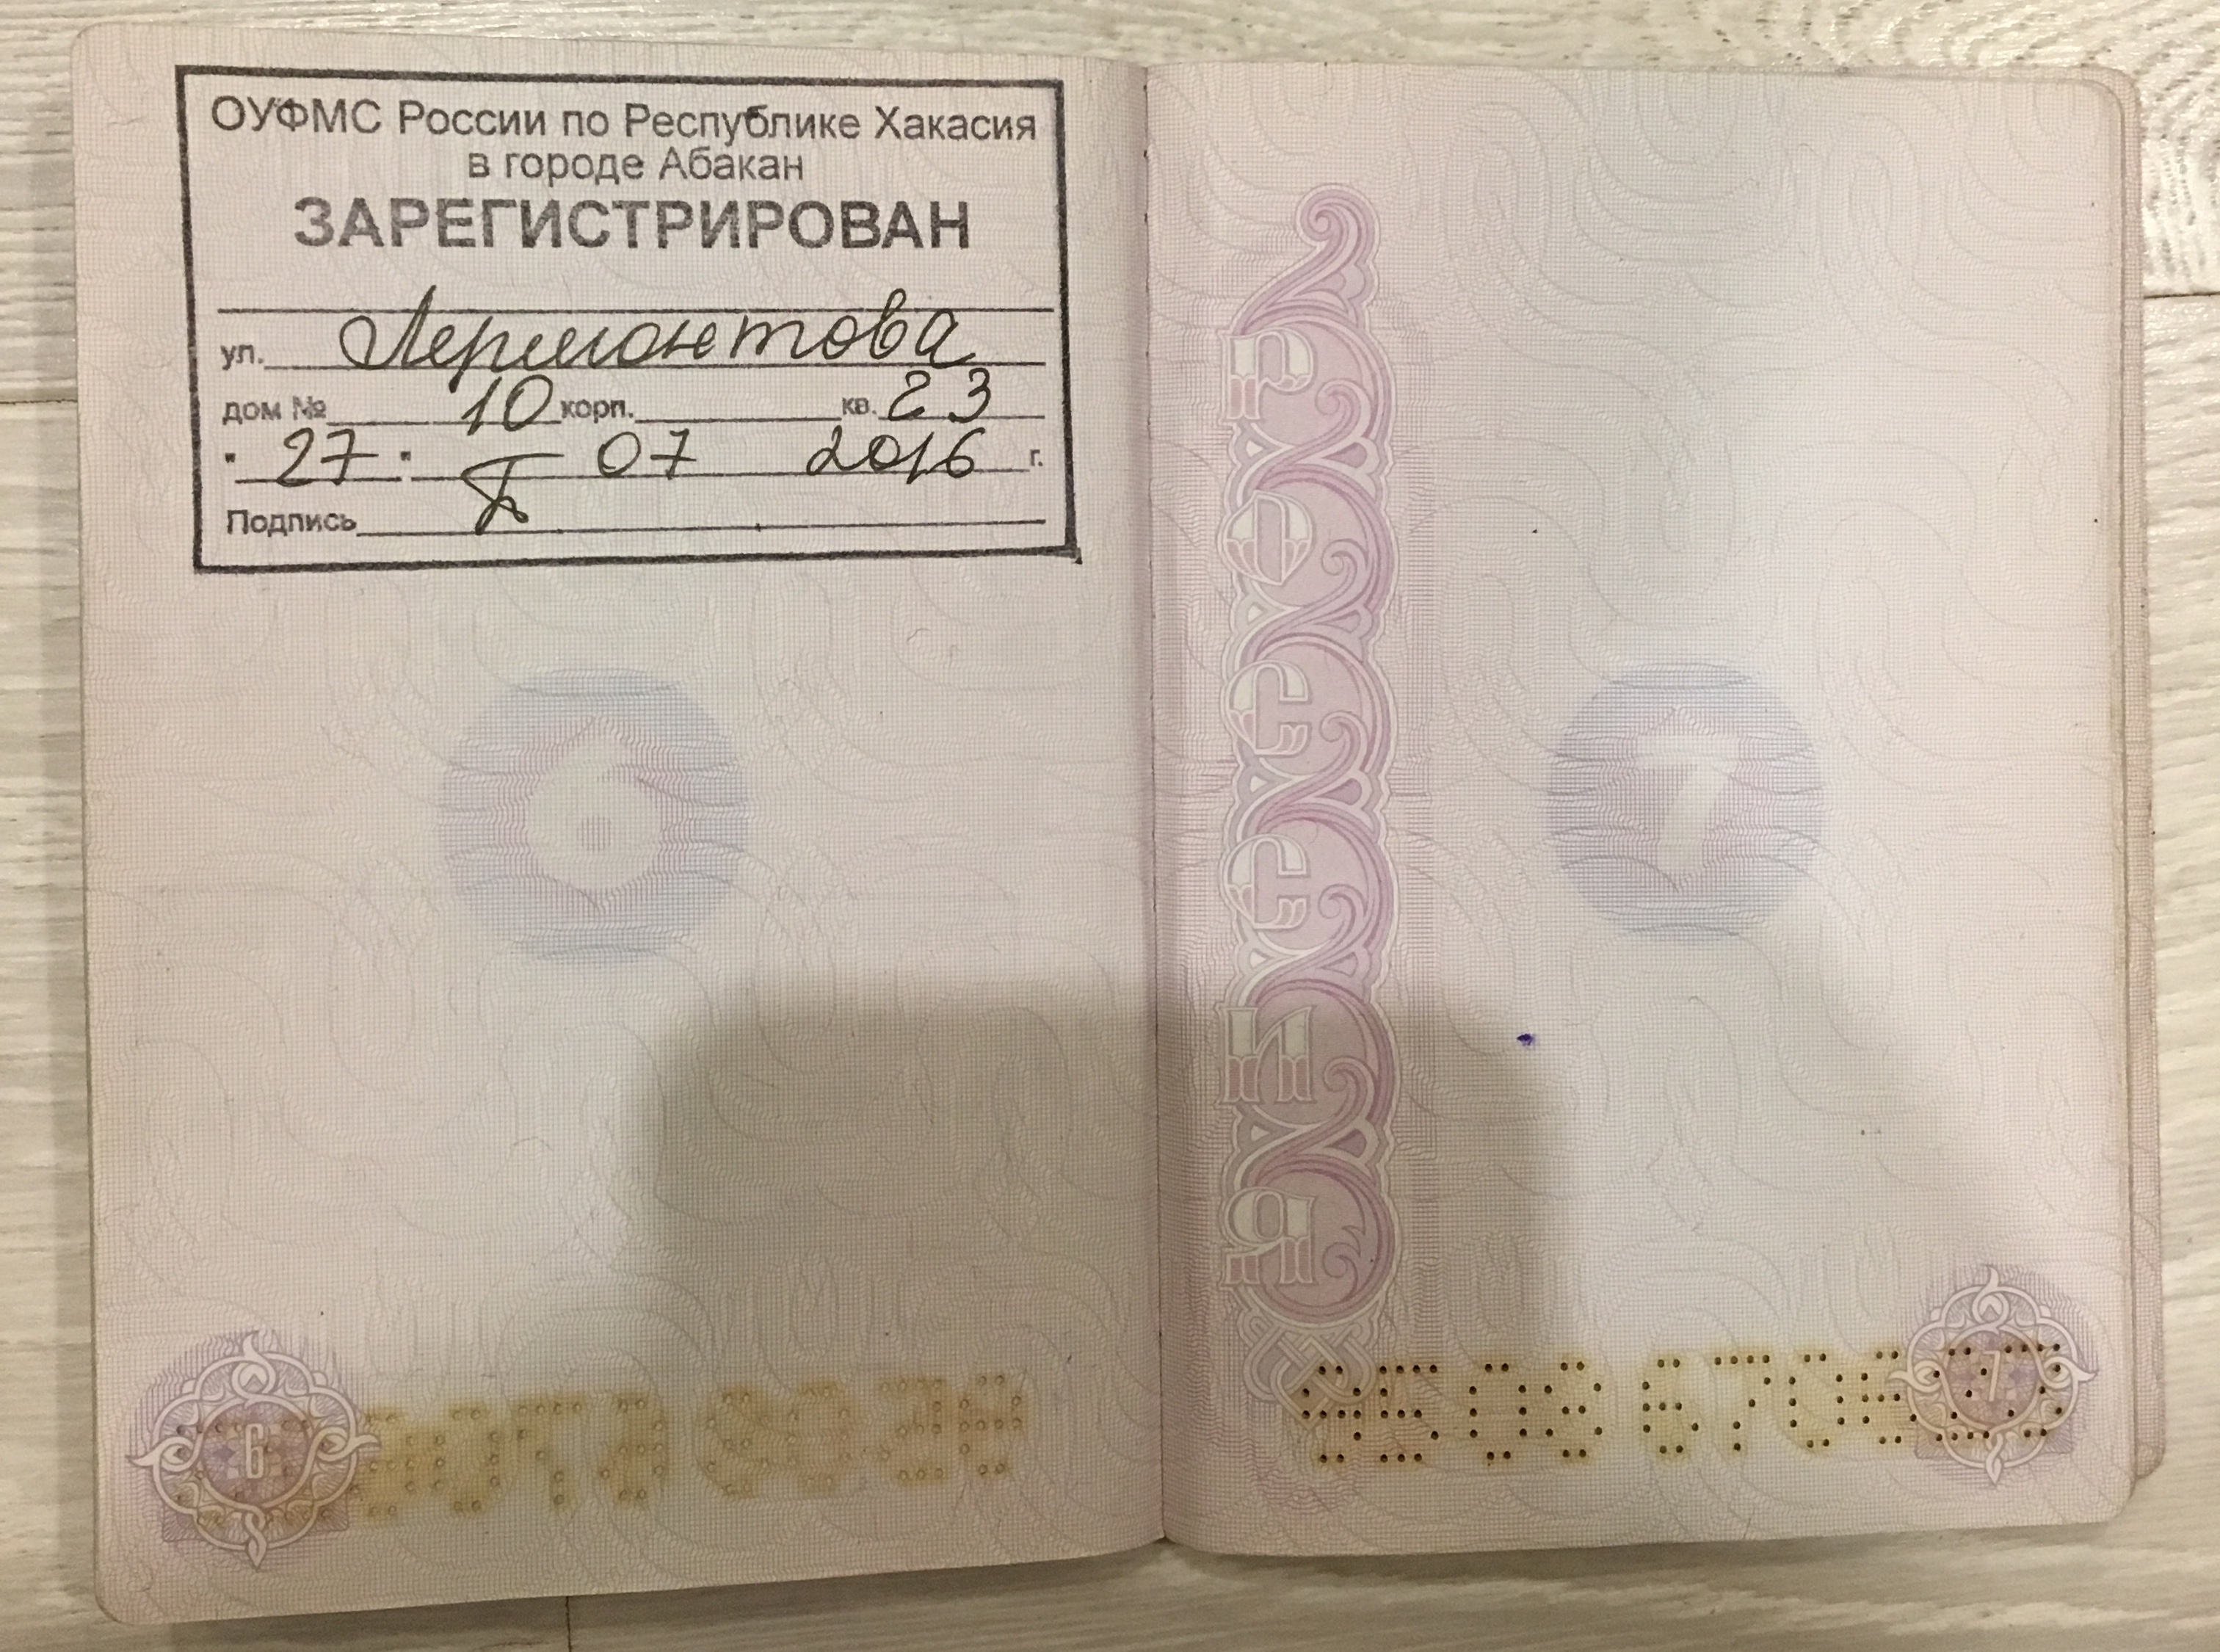 ОУФМС России по Республике Хакасия
в городе Абакан
ЗАРЕГИСТРИРОВАН
ул. Лермонтова
дом № 10 корп. кв. 23
" 27 " 07 2016 г.
Подпись
6
6
РОССИЯ
7
7